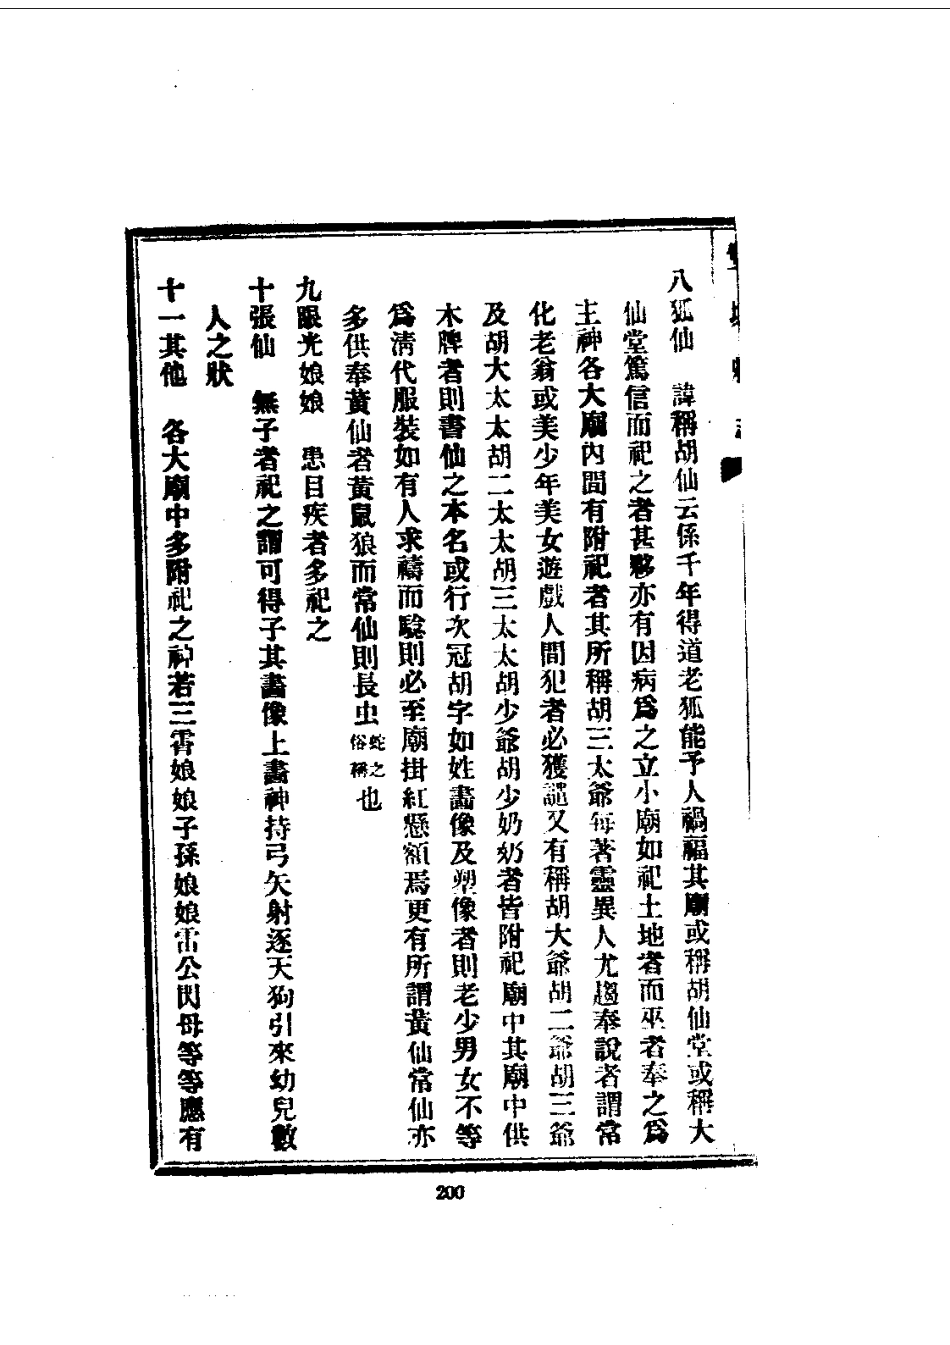 八狐仙　諱稱胡仙云係千年得道老狐能予人禍福其廟或稱胡仙堂或稱大
仙堂篤信而祀之者甚夥亦有因病爲之立小廟如祀土地者而巫者奉之爲
主神各大廟內間有附祀者其所稱胡三太爺每著靈異人尤趨奉說者謂常
化老翁或美少年美女遊戲人間犯者必獲譴又有稱胡大爺胡二爺胡三爺
及胡大太太胡二太太胡三太太胡少爺胡少奶奶者皆附祀廟中其廟中供
木牌者則書仙之本名或行次冠胡字如姓畫像及塑像者則老少男女不等
爲清代服裝如有人求禱而驗則必至廟掛紅懸額焉更有所謂黃仙常仙亦
多供奉黃仙者黃鼠狼而常仙則長虫蛇之俗稱也
九眼光娘娘　患目疾者多祀之
十張仙　無子者祀之謂可得子其畫像上畫神持弓矢射逐天狗引來幼兒數
人之狀
十一其他　各大廟中多附祀之神若三霄娘娘子孫娘娘雷公閃母等等應有
200